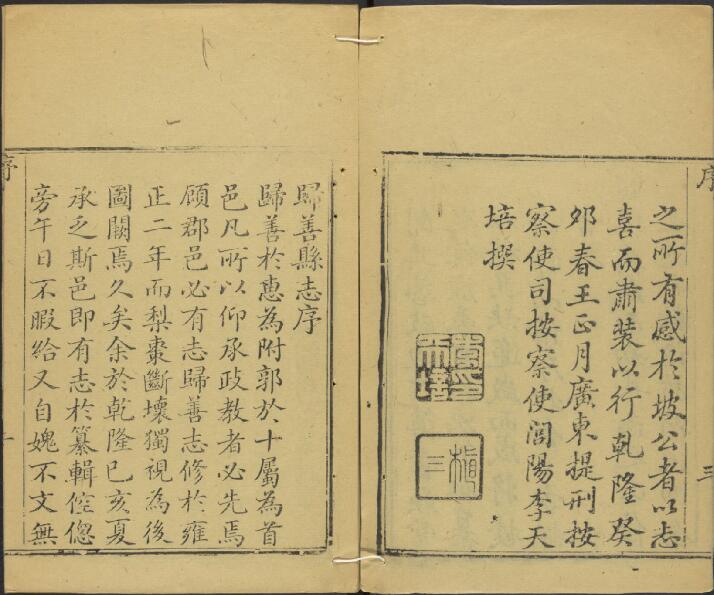 序
三
之所有感於坡公者以志
喜而肅装以行乾隆癸
夘春王正月廣東提刑按
察使司按察使閭陽李天
培撰
歸善縣志序
歸善於惠為附郭於十屬為首
邑凡所以仰承政教者必先焉
顧郡邑必有志歸善志修於雍
正二年而梨棗斷壞獨視為後
圖闕焉久矣余於乾隆已亥夏
承乏斯邑即有志於纂輯倥偬
旁午日不暇給又自媿不文無
序